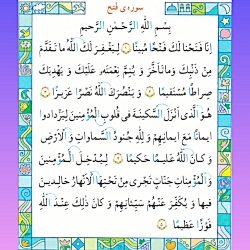 سوره‌ی فتح
بِسْمِ اللَّهِ الرَّحْمٰنِ الرَّحیمِ
اِنّا فَتَحْنا لَكَ فَتْحًا مُبینًا ۱ لِیَغْفِرَ لَكَ اللَّهُ ما تَقَدَّمَ
مِنْ ذَنْبِكَ وَ ما تَاَخَّرَ وَ یُتِمَّ نِعْمَتَهُ عَلَیْكَ وَ یَهْدِیَكَ
صِراطًا مُسْتَقیمًا ۲ وَ یَنْصُرَكَ اللَّهُ نَصْرًا عَزیزًا ۳
هُوَ الَّذی اَنْزَلَ السَّكینَةَ فی قُلوبِ الْمُؤْمِنینَ لِیَزْدادوا
ایمانًا مَعَ ایمانِهِمْ وَ لِلّٰهِ جُنودُ السَّماواتِ وَ الْاَرْضِ
وَ كانَ اللَّهُ عَلیمًا حَكیمًا ۴ لِیُدْخِلَ الْمُؤْمِنینَ
وَ الْمُؤْمِناتِ جَنّاتٍ تَجْری مِنْ تَحْتِهَا الْاَنْهارُ خالِدینَ
فیها وَ یُكَفِّرَ عَنْهُمْ سَیِّئاتِهِمْ وَ كانَ ذٰلِكَ عِنْدَ اللَّهِ
فَوْزًا عَظیمًا ۵